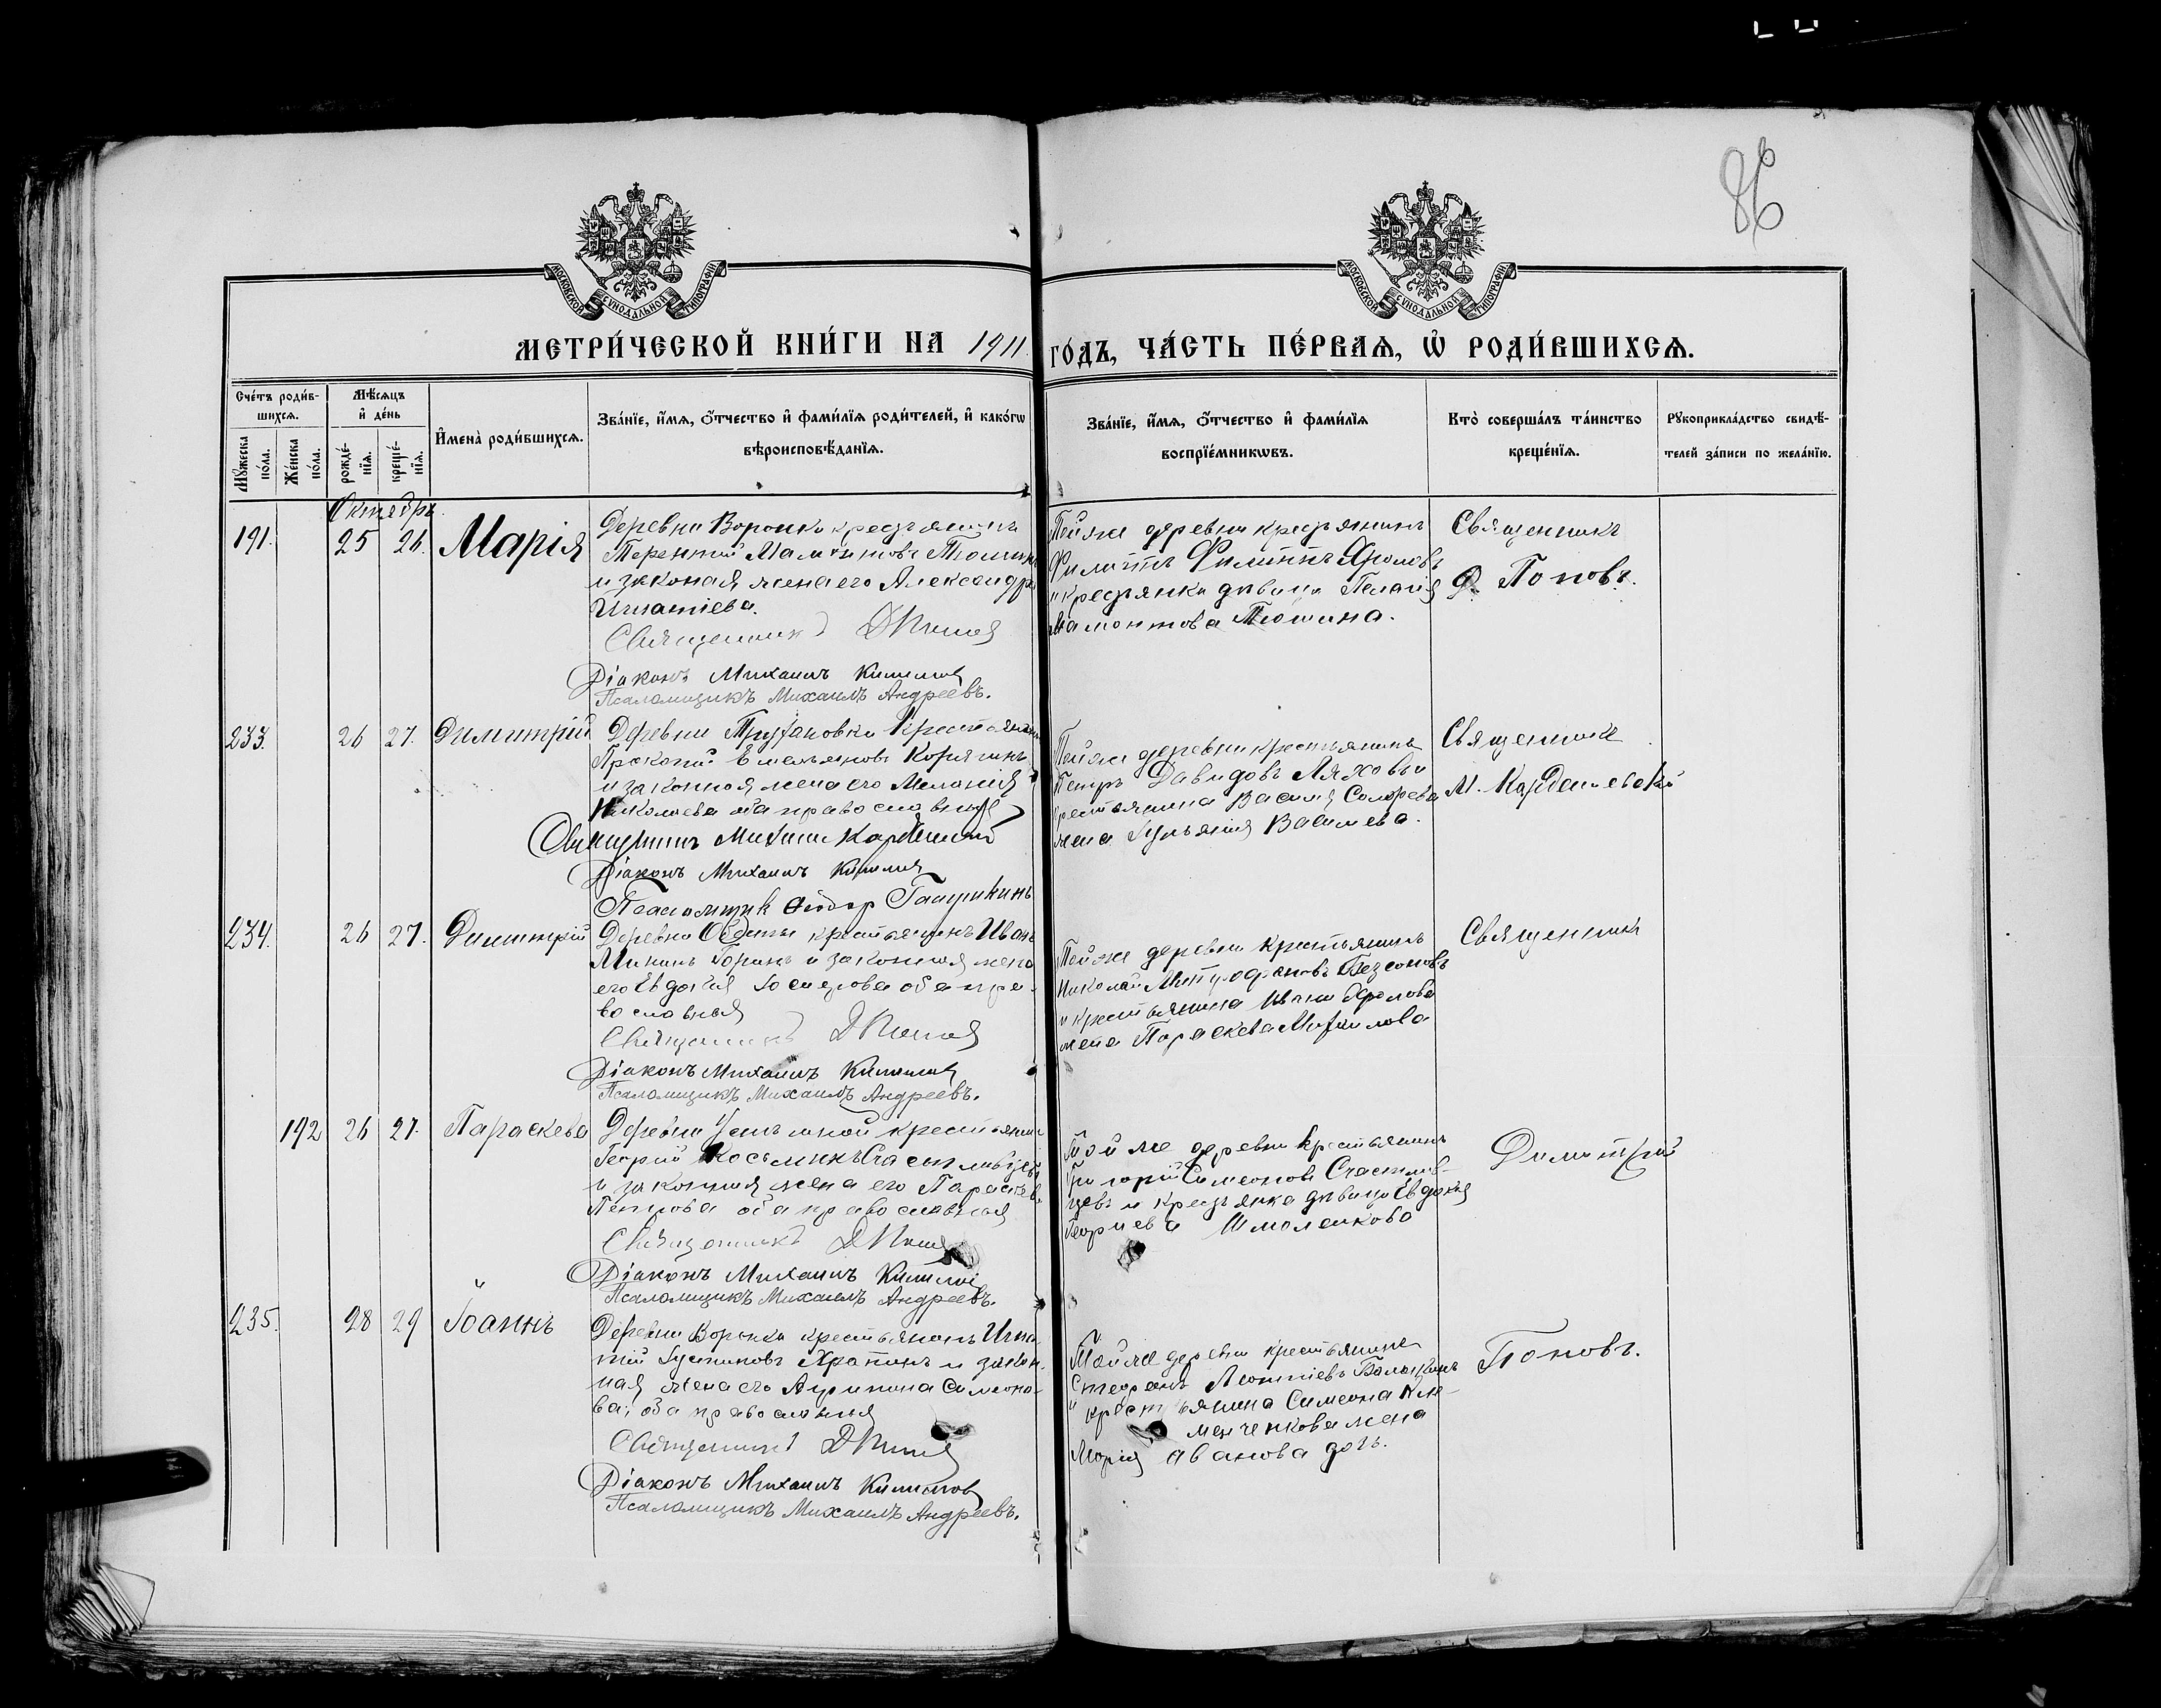 86
МОСКОВСКОЙ СУНОДАЛЬНОЙ ТИПОГРАФІИ
МОСКОВСКОЙ СУНОДАЛЬНОЙ ТИПОГРАФІИ
МЕТРИ́ЧЕСКОЙ КНИ́ГИ НА 1911 ГО́ДЪ, ЧА́СТЬ ПЕ́РВАѦ, Ѽ РОДИ́ВШИХСѦ.
Сче́тъ роди́в-
шихсѧ.
Мꙋжеска по́ла.
Же́нска по́ла.
Мѣ́сѧцъ
и҆ де́нь
рожде́-
нїѧ.
креще́-
нїѧ.
И҆мена̀ роди́вшихсѧ.
Зва́нїе, и҆́мѧ, ѻ҆́тчество и҆ фами́лїѧ роди́телей, и҆ како́гѡ
вѣроисповѣ́данїѧ.
Зва́нїе, и҆́мѧ, ѻ҆́тчество и҆ фами́лїѧ
воспрїе́мникѡвъ.
Кто̀ соверша́лъ та́инство
креще́нїѧ.
Рꙋкоприкла́дство свидѣ́-
телей за́писи по жела́нїю.
Октябрь
191. 25 26. Марія
Деревни Воронки крестьянинъ
Терентій Мамонтовъ Тюшинъ
и законая жена его Александра
Игнатіева.
Священникъ ДПопов
Діаконъ Михаилъ
Псаломщикъ Михаилъ Андреевъ.
Тойже деревни крестьянинъ
Филиппъ Филиппъ Хромовъ
и крестьянка дѣвица Пелагія
Мамонтова Тюшина.
Священникъ
Д. Поповъ.
233. 26 27. Димитрій
Деревни Крестьянинъ
Прокопій Емельяновъ
и законная жена его Меланія
Николаева оба православные
Священникъ Михаил
Діаконъ Михаилъ
Псаломщик Ѳеодор
Тойже деревни крестьянинъ
Петръ Давидовъ Ляховъ и
крестьянина Василія
жена Васильева.
Священникъ
М.
234. 26 27. Димитрій
Деревни крестьянинъ Иванъ
и законная жена
его Евдокія оба пра-
вославныя
Священникъ ДПопов
Діаконъ Михаилъ
Псаломщикъ Михаилъ Андреевъ.
Тойже деревни крестьянинъ
Николай Митрофановъ Безсоновъ
и крестьянина Ивана Фролова
жена Параскева Михаилова
Священникъ
192 26 27. Параскева
Деревни крестьянинъ
Георгій Косьминъ Счастливцевъ
и законная жена его Параскева
Петрова оба православныя
Священникъ ДПопов
Діаконъ Михаилъ
Псаломщикъ Михаилъ Андреевъ.
Той же деревни крестьянинъ
Григорій Симеоновъ Счастлив-
цевъ и крестьянка дѣвица Евдокія
Георгіева Шмоленкова
Димитрій
235. 28 29 Іоаннъ
Деревни Воронки крестьянинъ Игна-
тій Густиновъ Храпинъ и закон-
ная жена его Агрипина Симеоно-
ва, оба православныя
Священникъ ДПопов
Діаконъ Михаилъ
Псаломщикъ Михаилъ Андреевъ.
Тойже деревни крестьянинъ
Стефанъ Леонтіевъ
и крестьянина Симеона Кле-
менченкова жена
Марія Иванова дочь.
Поповъ.